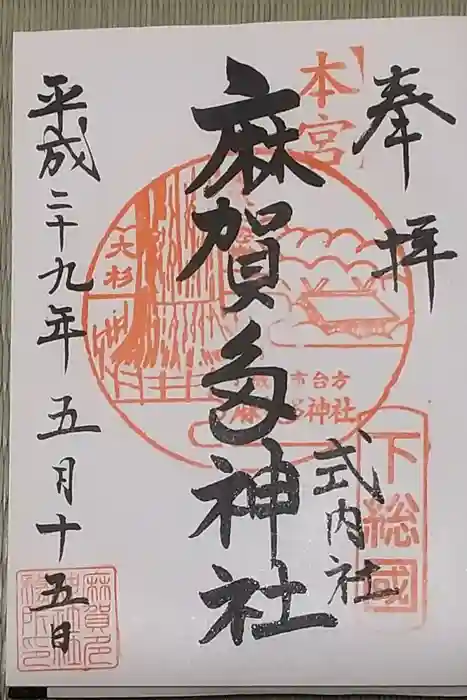 奉拝
本宮
式内社
下総國
麻賀多神社
大杉
市台方
麻 多神社
平成二十九年五月十五日